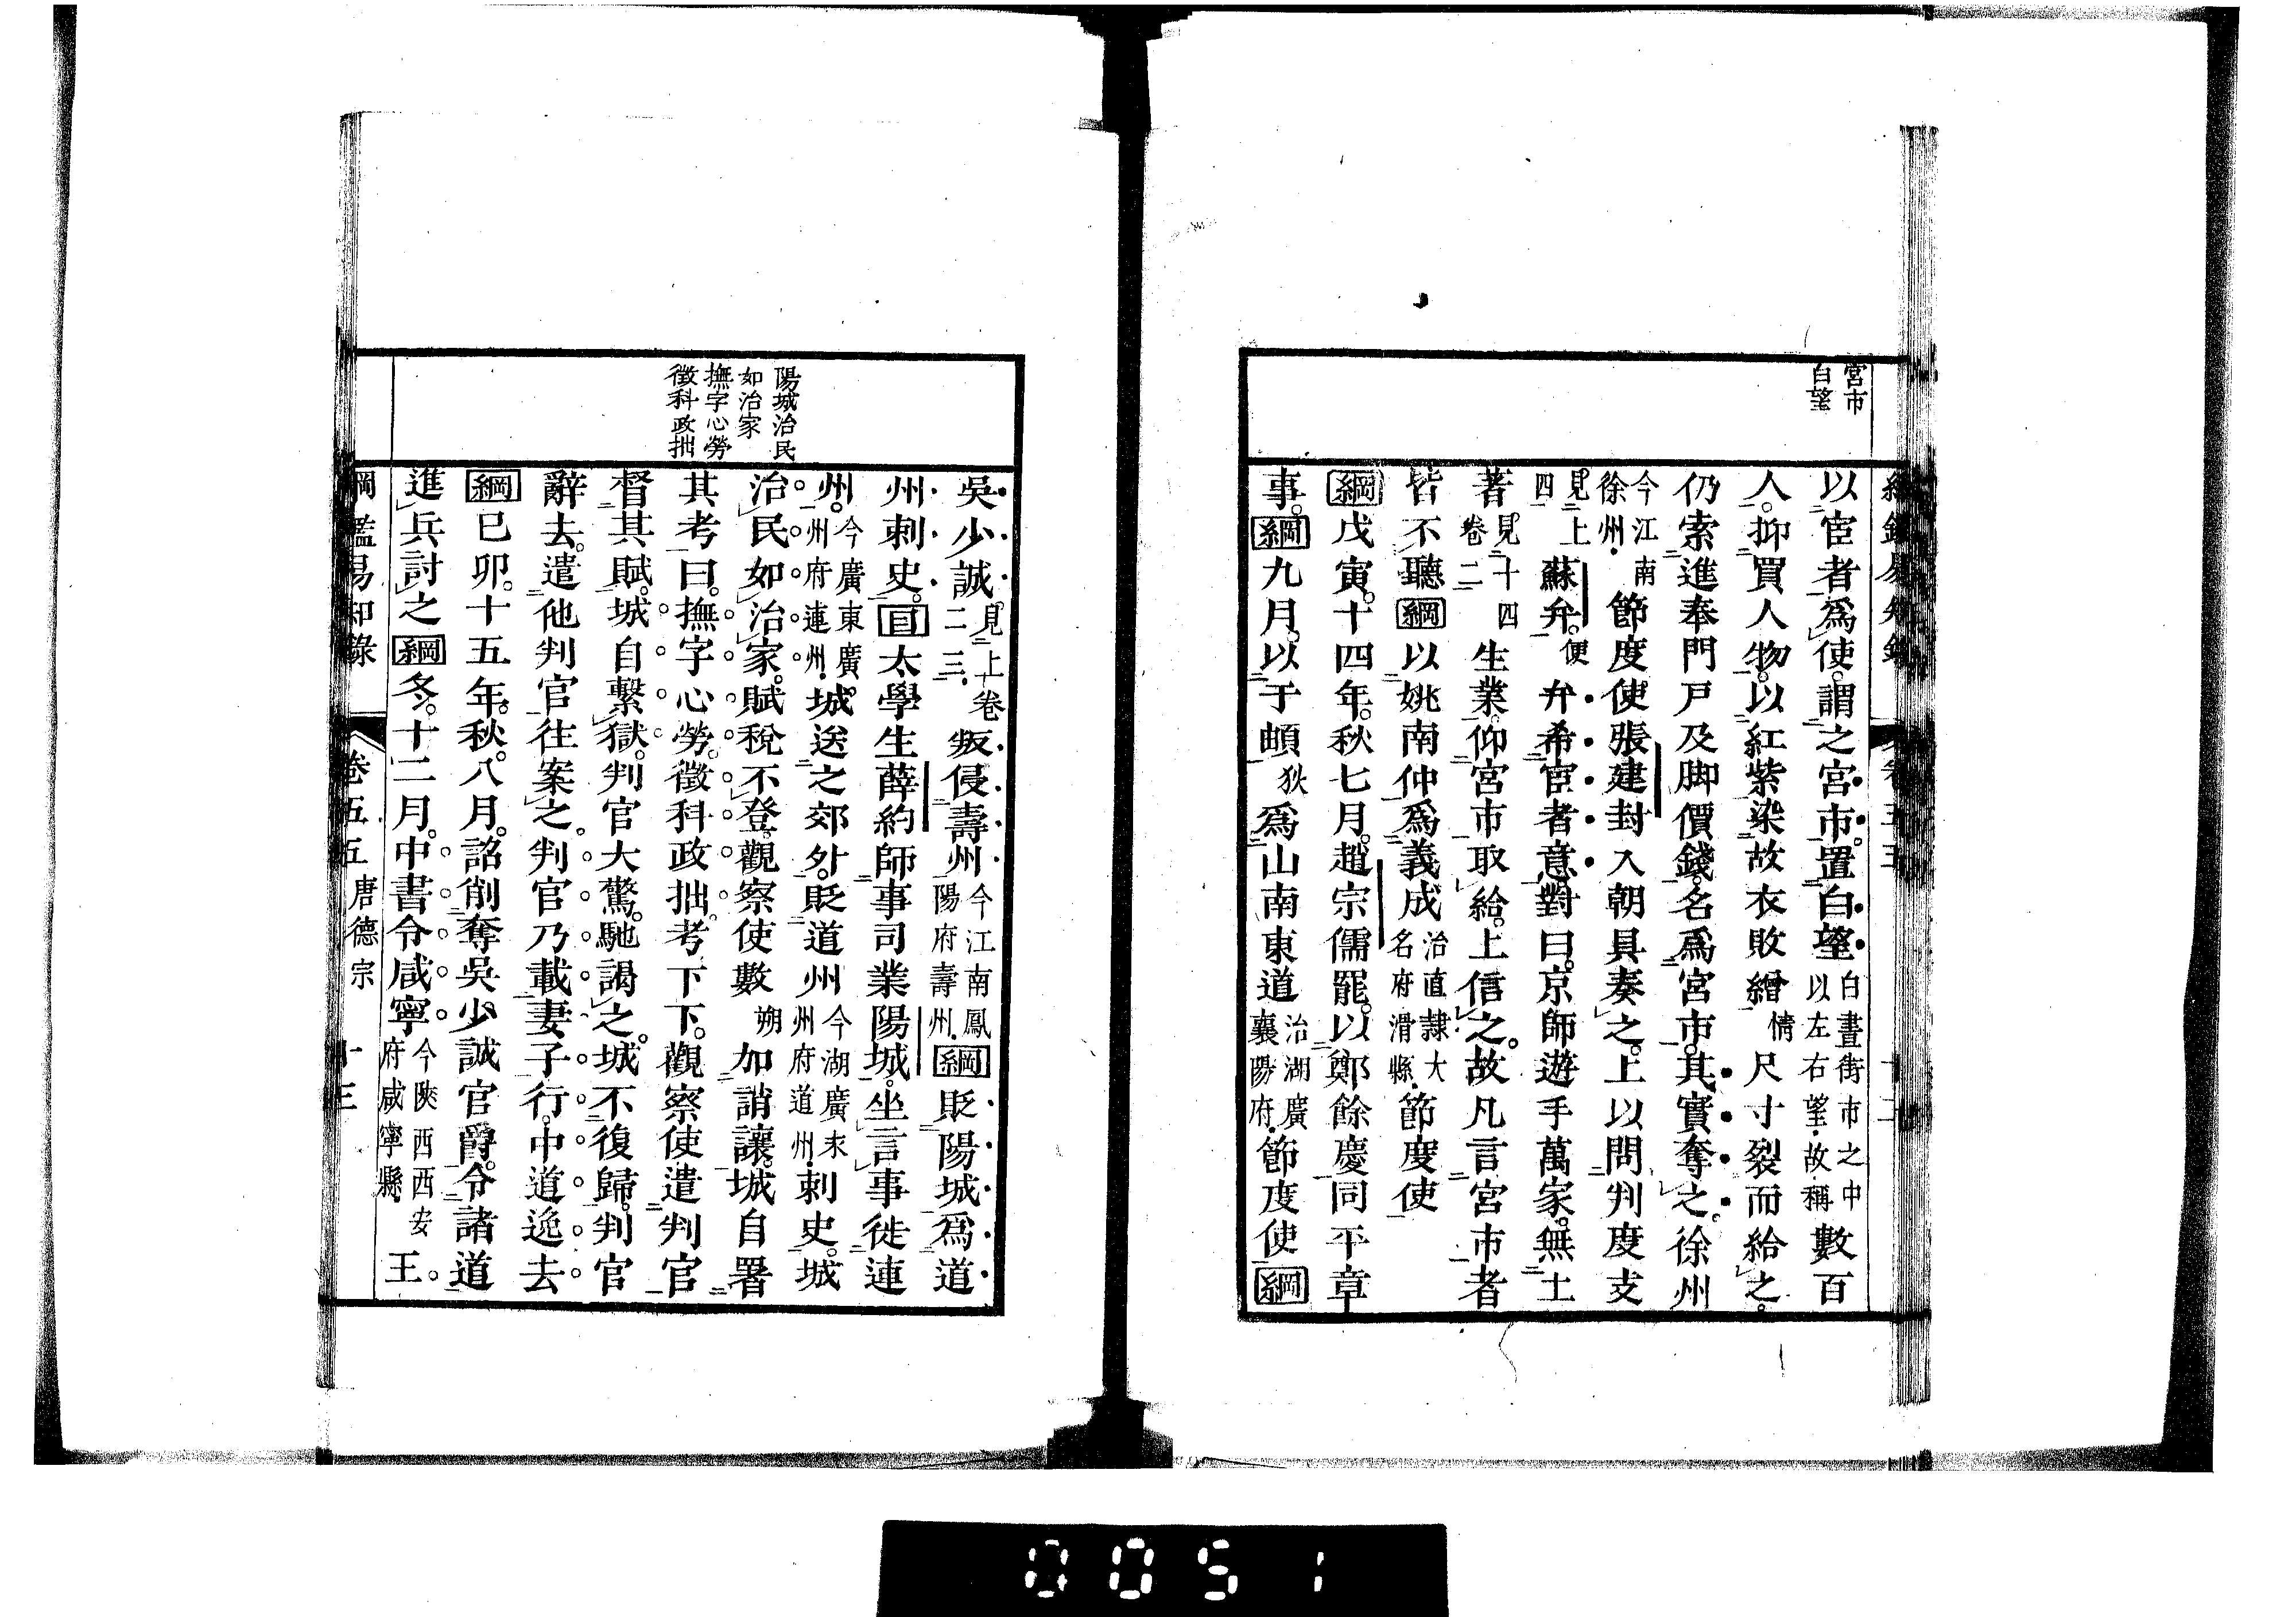 宮市
白望
以宦者爲使。謂之宮市。置白望白晝街市之中以左右望故稱數百
人。抑買人物。以紅紫染故衣敗繒情尺寸裂而給之。
仍索進奉門戸及脚價錢。名爲宮市。其實奪之。徐州
今江南徐州節度使張建封入朝具奏之。上以問判度支
見上四蘇弁。便弁希宦者意對曰。京師遊手萬家。無土
著見十四卷二生業。仰宮市取給。上信之。故凡言宮市者
皆不聽綱以姚南仲爲義成治直隷大名府滑縣節度使
綱戊寅。十四年。秋七月。趙宗儒罷。以鄭餘慶同平章
事。綱九月。以于頔狄爲山南東道治湖廣襄陽府節度使綱
陽城治民
如治家
撫字心勞
徵科政拙
吳少誠。見上卷二三叛侵壽州今江南鳳陽府壽州綱貶陽城爲道
州刺史。目太學生薛約師事司業陽城。坐言事徙連
州。今廣東廣州府連州城送之郊外。貶道州今湖廣末州府道州刺史。城
治民如治家。賦稅不登。觀察使數朔加誚讓。城自署
其考曰。撫字心勞。徵科政拙。考下下。觀察使遣判官
督其賦。城自繫獄。判官大驚。馳謁之。城不復歸。判官
辭去。遣他判官往案之。判官乃載妻子行。中道逸去
綱巳卯。十五年。秋。八月。詔削奪吳少誠官爵。令諸道
進兵討之綱冬。十二月。中書令咸寧今陝西西安府咸寧縣王
綱鑑易知錄 卷五五 唐德宗 十三
0051